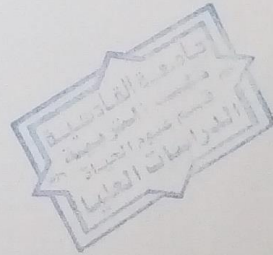 جامعة القادسية
كلية
قسم علوم الحياة
الدراسات العليا